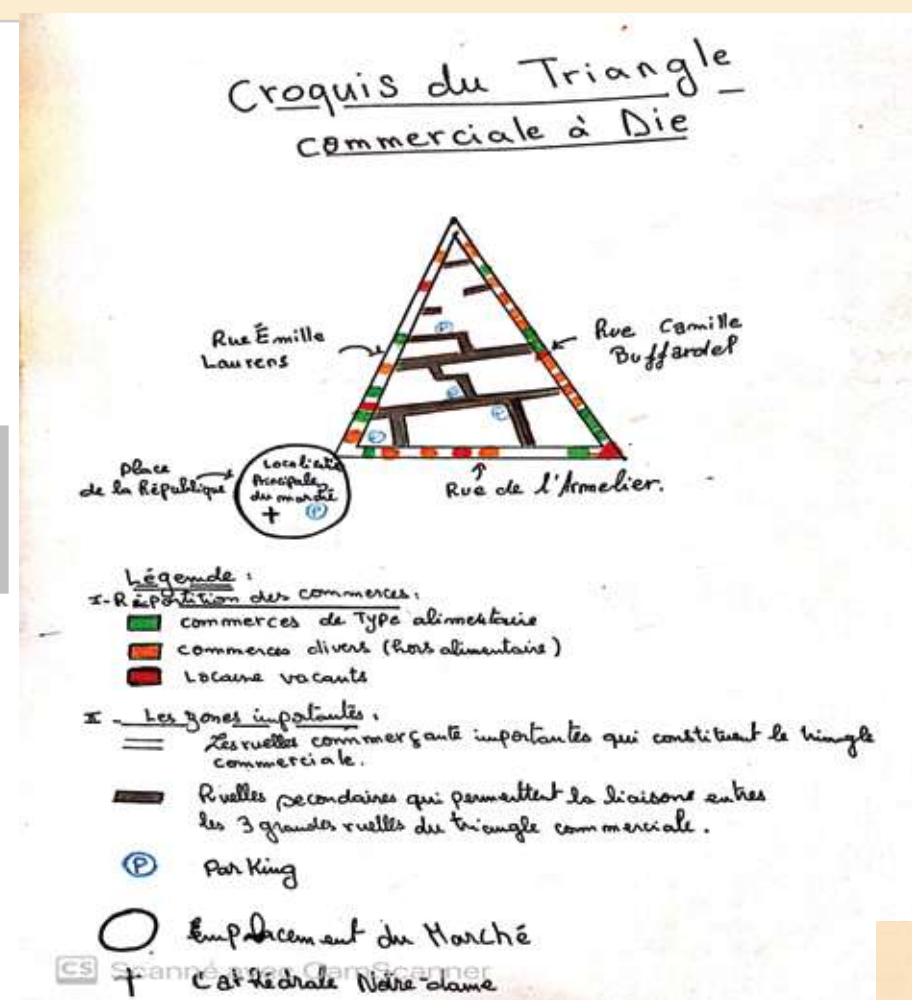 Croquis du Triangle
commerciale à Die
Rue Émille
Laurens
Rue Camille
Buffardel
Place
de la République
Localisation
Principale
du marché
P
P
P
P
P
Rue de l'Armelier.
Légende :
I-Répartition des commerces :
commerces de Type alimentaire
commerces divers (hors alimentaire)
Locaux vacants
II - Les zones importantes :
Les ruelles commerçante importantes qui constituent le triangle
commerciale.
Ruelles secondaires qui permettent la liaison entres
les 3 grandes ruelles du triangle commerciale.
P Parking
Emplacement du Marché
CS Scanné avec CamScanner
Cathédrale Notre-dame